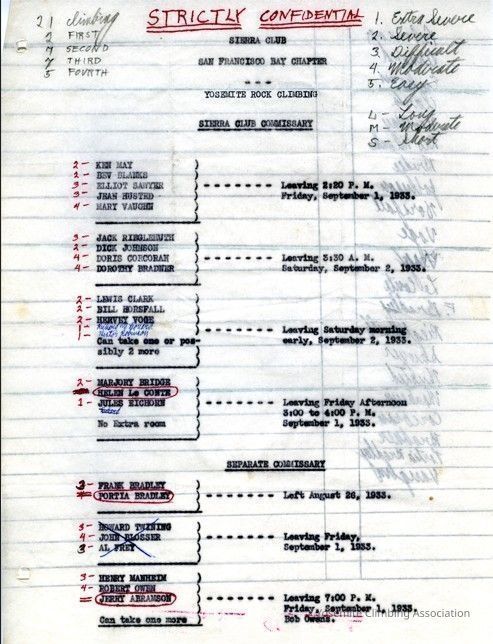 STRICTLY CONFIDENTIAL
21 climbing
2 FIRST
7 SECOND
7 THIRD
5 FOURTH
1. Extra Severe
2. Severe
3. Difficult
4. Moderate
5. Easy
L - Long
M - Moderate
S - Short
SIERRA CLUB
SAN FRANCISCO BAY CHAPTER
- - -
YOSEMITE ROCK CLIMBING
SIERRA CLUB COMMISSARY
2- KEN MAY
2- BEV BLANKS
3- ELLIOT SAWYER
3- JEAN HUSTED
4- MARY VAUGHN
- - - - - - - - Leaving 2:20 P. M.
Friday, September 1, 1933.
3- JACK RIEGLEHUTH
2- DICK JOHNSON
4- DORIS CORCORAN
4- DOROTHY BRADNER
- - - - - - - - Leaving 3:30 A. M.
Saturday, September 2, 1933.
2- LEWIS CLARK
2- BILL HORSFALL
2- HERVEY VOGE
1-
Can take one or pos-
sibly 2 more
- - - - - - - - Leaving Saturday morning
early, September 2, 1933.
2- MARJORY BRIDGE
HELEN Le CONTE
1- JULES EICHORN
No Extra room
- - - - - - - - Leaving Friday Afternoon
3:00 to 4:00 P. M.
September 1, 1933.
SEPARATE COMMISSARY
3- FRANK BRADLEY
PORTIA BRADLEY
- - - - - - - - Left August 26, 1933.
3- HOWARD TWINING
4- JOHN BLOSSER
3- AL FREY
- - - - - - - - Leaving Friday,
September 1, 1933.
3- HENRY MANHEIM
4- ROBERT OWEN
JERRY ABRAMSON
Can take one more
- - - - - - - - Leaving 7:00 P. M.
Friday, September 1, 1933.
Bob Owens.
Yosemite Climbing Association